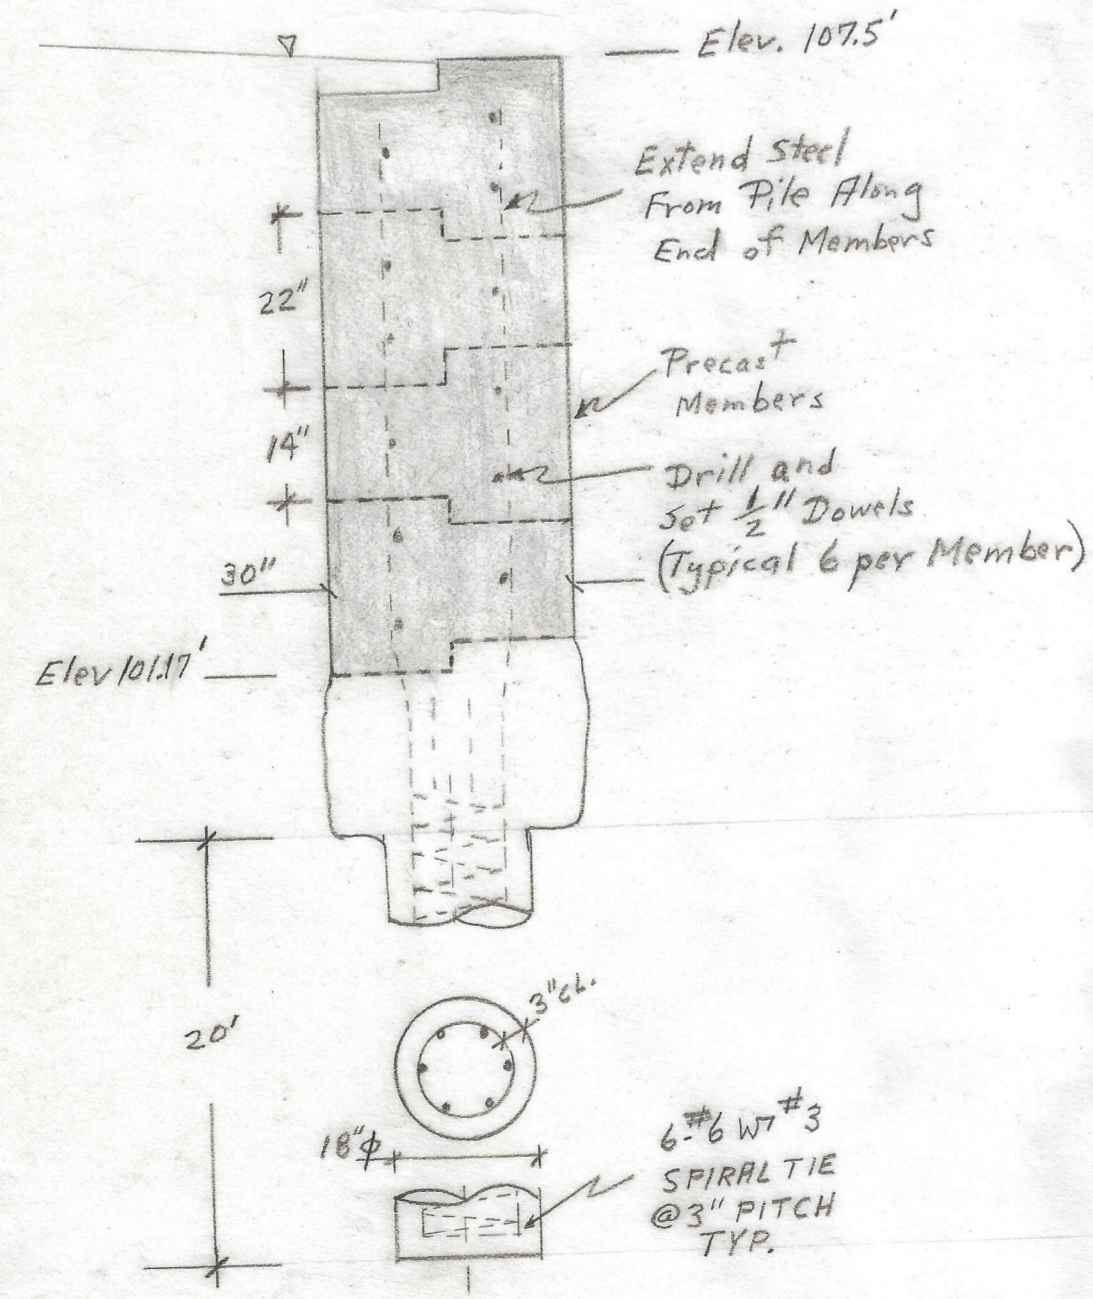 Elev. 107.5'
Extend Steel
From Pile Along
End of Members
22"
Precast
Members
14"
Drill and
Set 1/2" Dowels
(Typical 6 per Member)
30"
Elev 101.17'
3" CL.
20'
18"φ
6-#6 W7 #3
SPIRAL TIE
@3" PITCH
TYP.